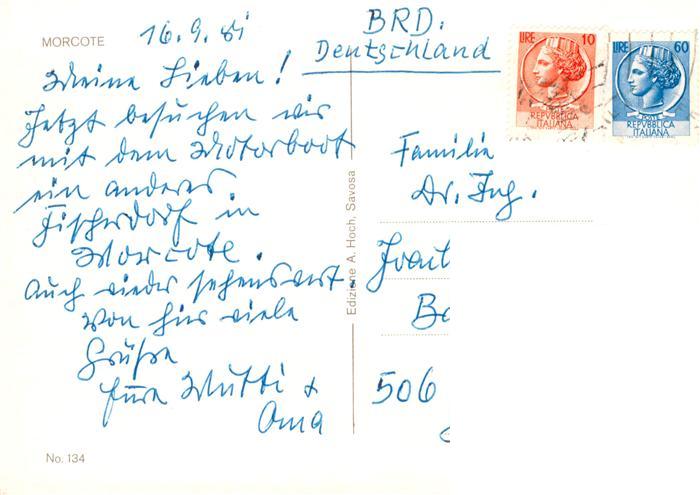 MORCOTE
16.9.81
Meine Lieben!
Jetzt besuchen wir
mit dem Motorboot
ein anderes
Fischerdorf in
Morcote.
Auch wieder sehenswert.
Von hier viele
Grüße
Eure Mutti &
Oma
No. 134
Edizione A. Hoch, Savosa
BRD.
Deutschland
LIRE 10
POSTE
REPVBBLICA
ITALIANA
LIRE 60
POSTE
REPVBBLICA
ITALIANA
Familie
Dr. Ing.
506